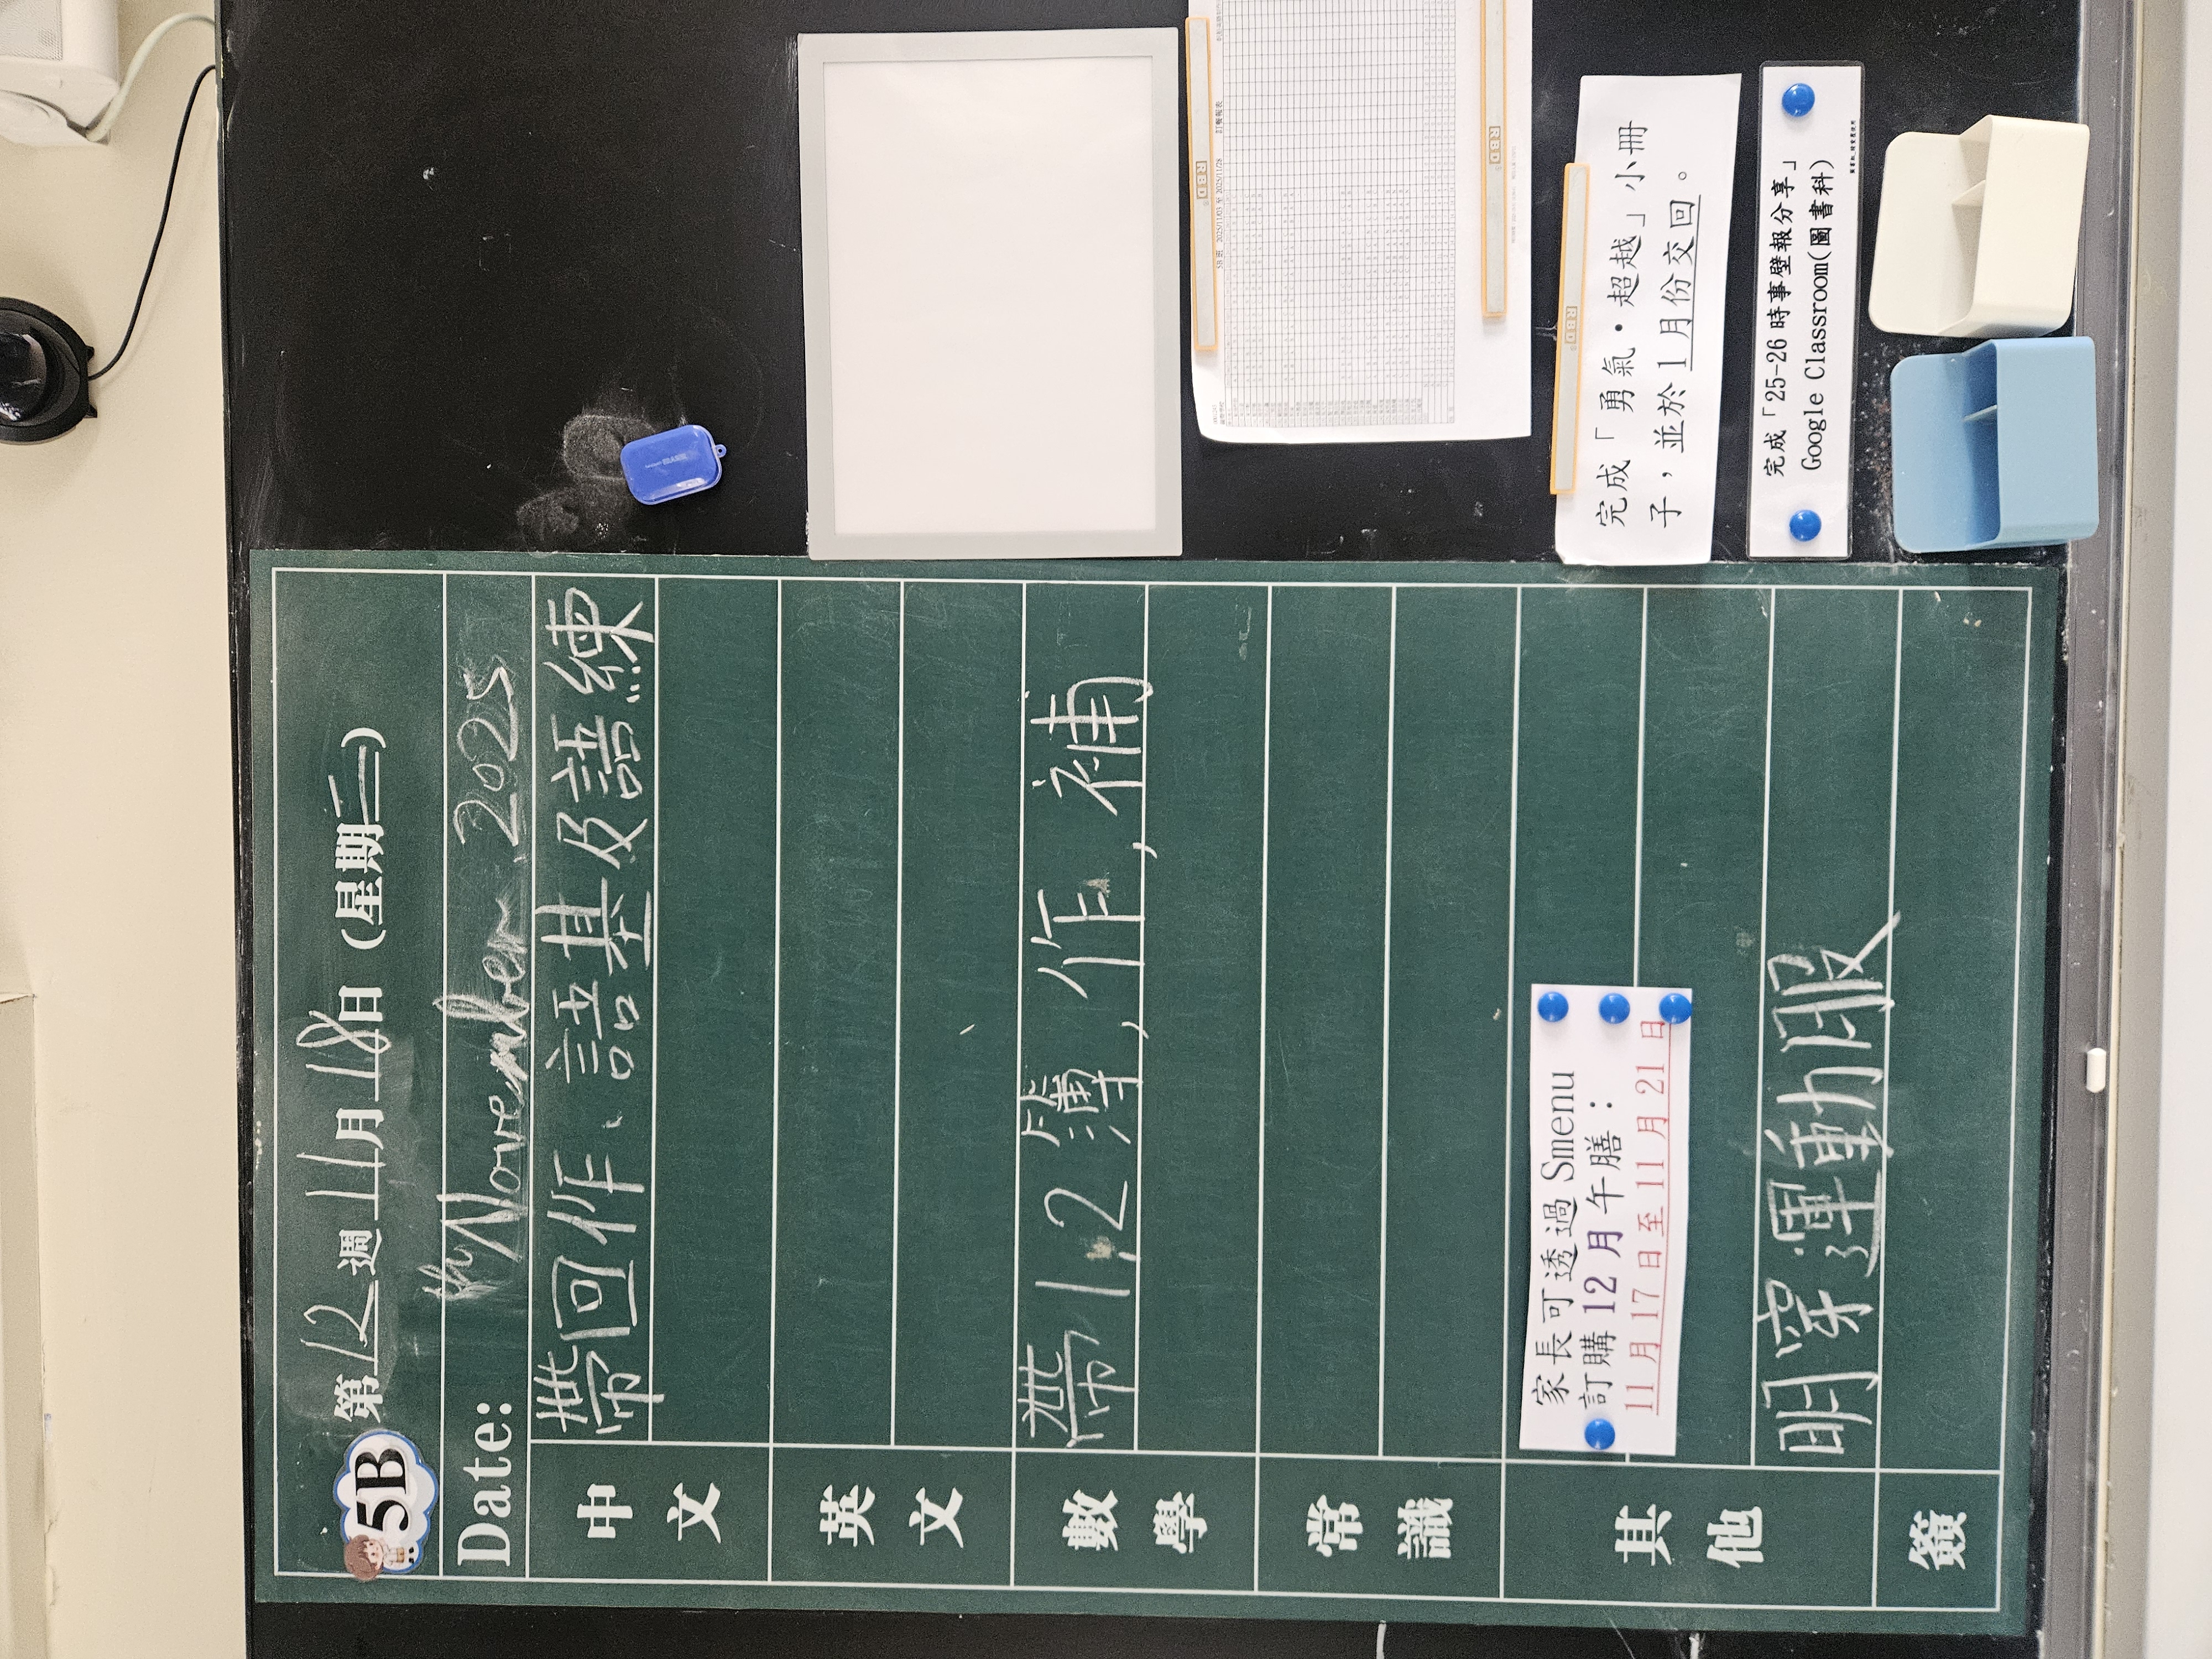 5B
第12週11月18日(星期二)
Date: th November, 2025
中文
帶回作、語基及語練
英文
數學
帶1,2簿,作,補
常識
其他
家長可透過 Smenu
訂購 12 月午膳：
11 月 17 日至 11 月 21 日
明穿運動服
簽
5B 班 2025/11/03 至 2025/11/28 訂餐報表
RBD
RBD
RBD
完成「勇氣・超越」小冊
子，並於 1 月份交回。
完成「25-26 時事壁報分享」
Google Classroom(圖書科)